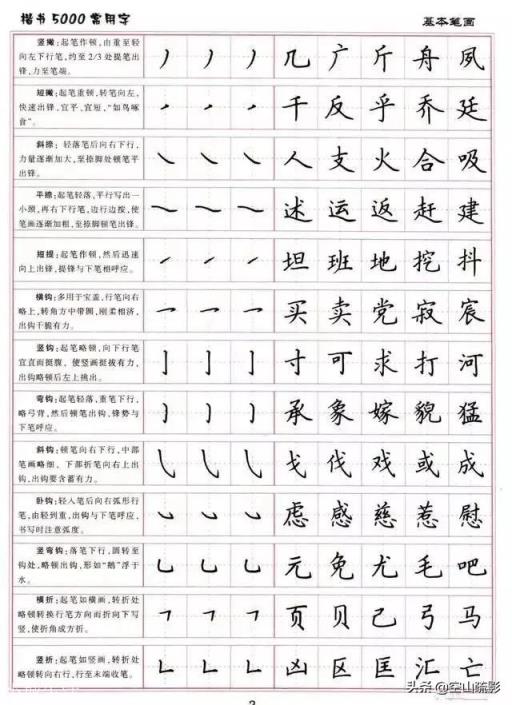 楷书5000常用字
基本笔画
竖撇:起笔作顿,由重至轻
向左下行笔,约至2/3处提笔出
锋,力至笔端。
几 广 斤 舟 夙
短撇:起笔重顿,转笔向左,
快速出锋,宜平、宜短,“如鸟啄
食”。
干 反 乎 乔 廷
斜捺:轻落笔后向右下行,
力量逐渐加大,至捺脚处顿笔平
出锋。
人 支 火 合 吸
平捺:起笔轻落,平行写出一
小头,再右下行笔,边行边按,使
笔画逐渐加粗,至捺脚顿笔出锋。
述 运 返 赶 建
短提:起笔作顿,然后迅速
向上出锋,提锋与下笔相呼应。
坦 班 地 挖 抖
横钩:多用于宝盖,行笔向右
略上,转角方中带圆,刚柔相济,
出钩干脆有力。
买 卖 党 寂 宸
竖钩:起笔略顿,向下行笔
宜直而挺腹,使竖画挺拔有力,
出钩略顿后左上挑出。
寸 可 求 打 河
弯钩:起笔轻落,重笔下行,
略弓背,然后顿笔出钩,锋势与
下笔呼应。
承 象 嫁 貌 猛
斜钩:顿笔向右下行,中部
笔画略细,下部折笔向右上出
钩,出钩要含蓄有力。
戈 伐 戏 或 成
卧钩:轻入笔后向右弧形行
笔,由轻到重,出钩与下笔呼应,
书写时注意弧度。
虑 感 慈 惹 慰
竖弯钩:落笔下行,圆转至
钩处,略顿出钩,形如“鹅”浮于
水。
元 免 尤 毛 吧
横折:起笔如横画,转折处
略顿转换行笔方向而折向下写
竖,使折角成方折。
页 贝 己 弓 马
竖折:起笔如竖画,转折处
略顿转向右行,行至末端收笔。
凶 区 匡 汇 亡
头条@空山疏影